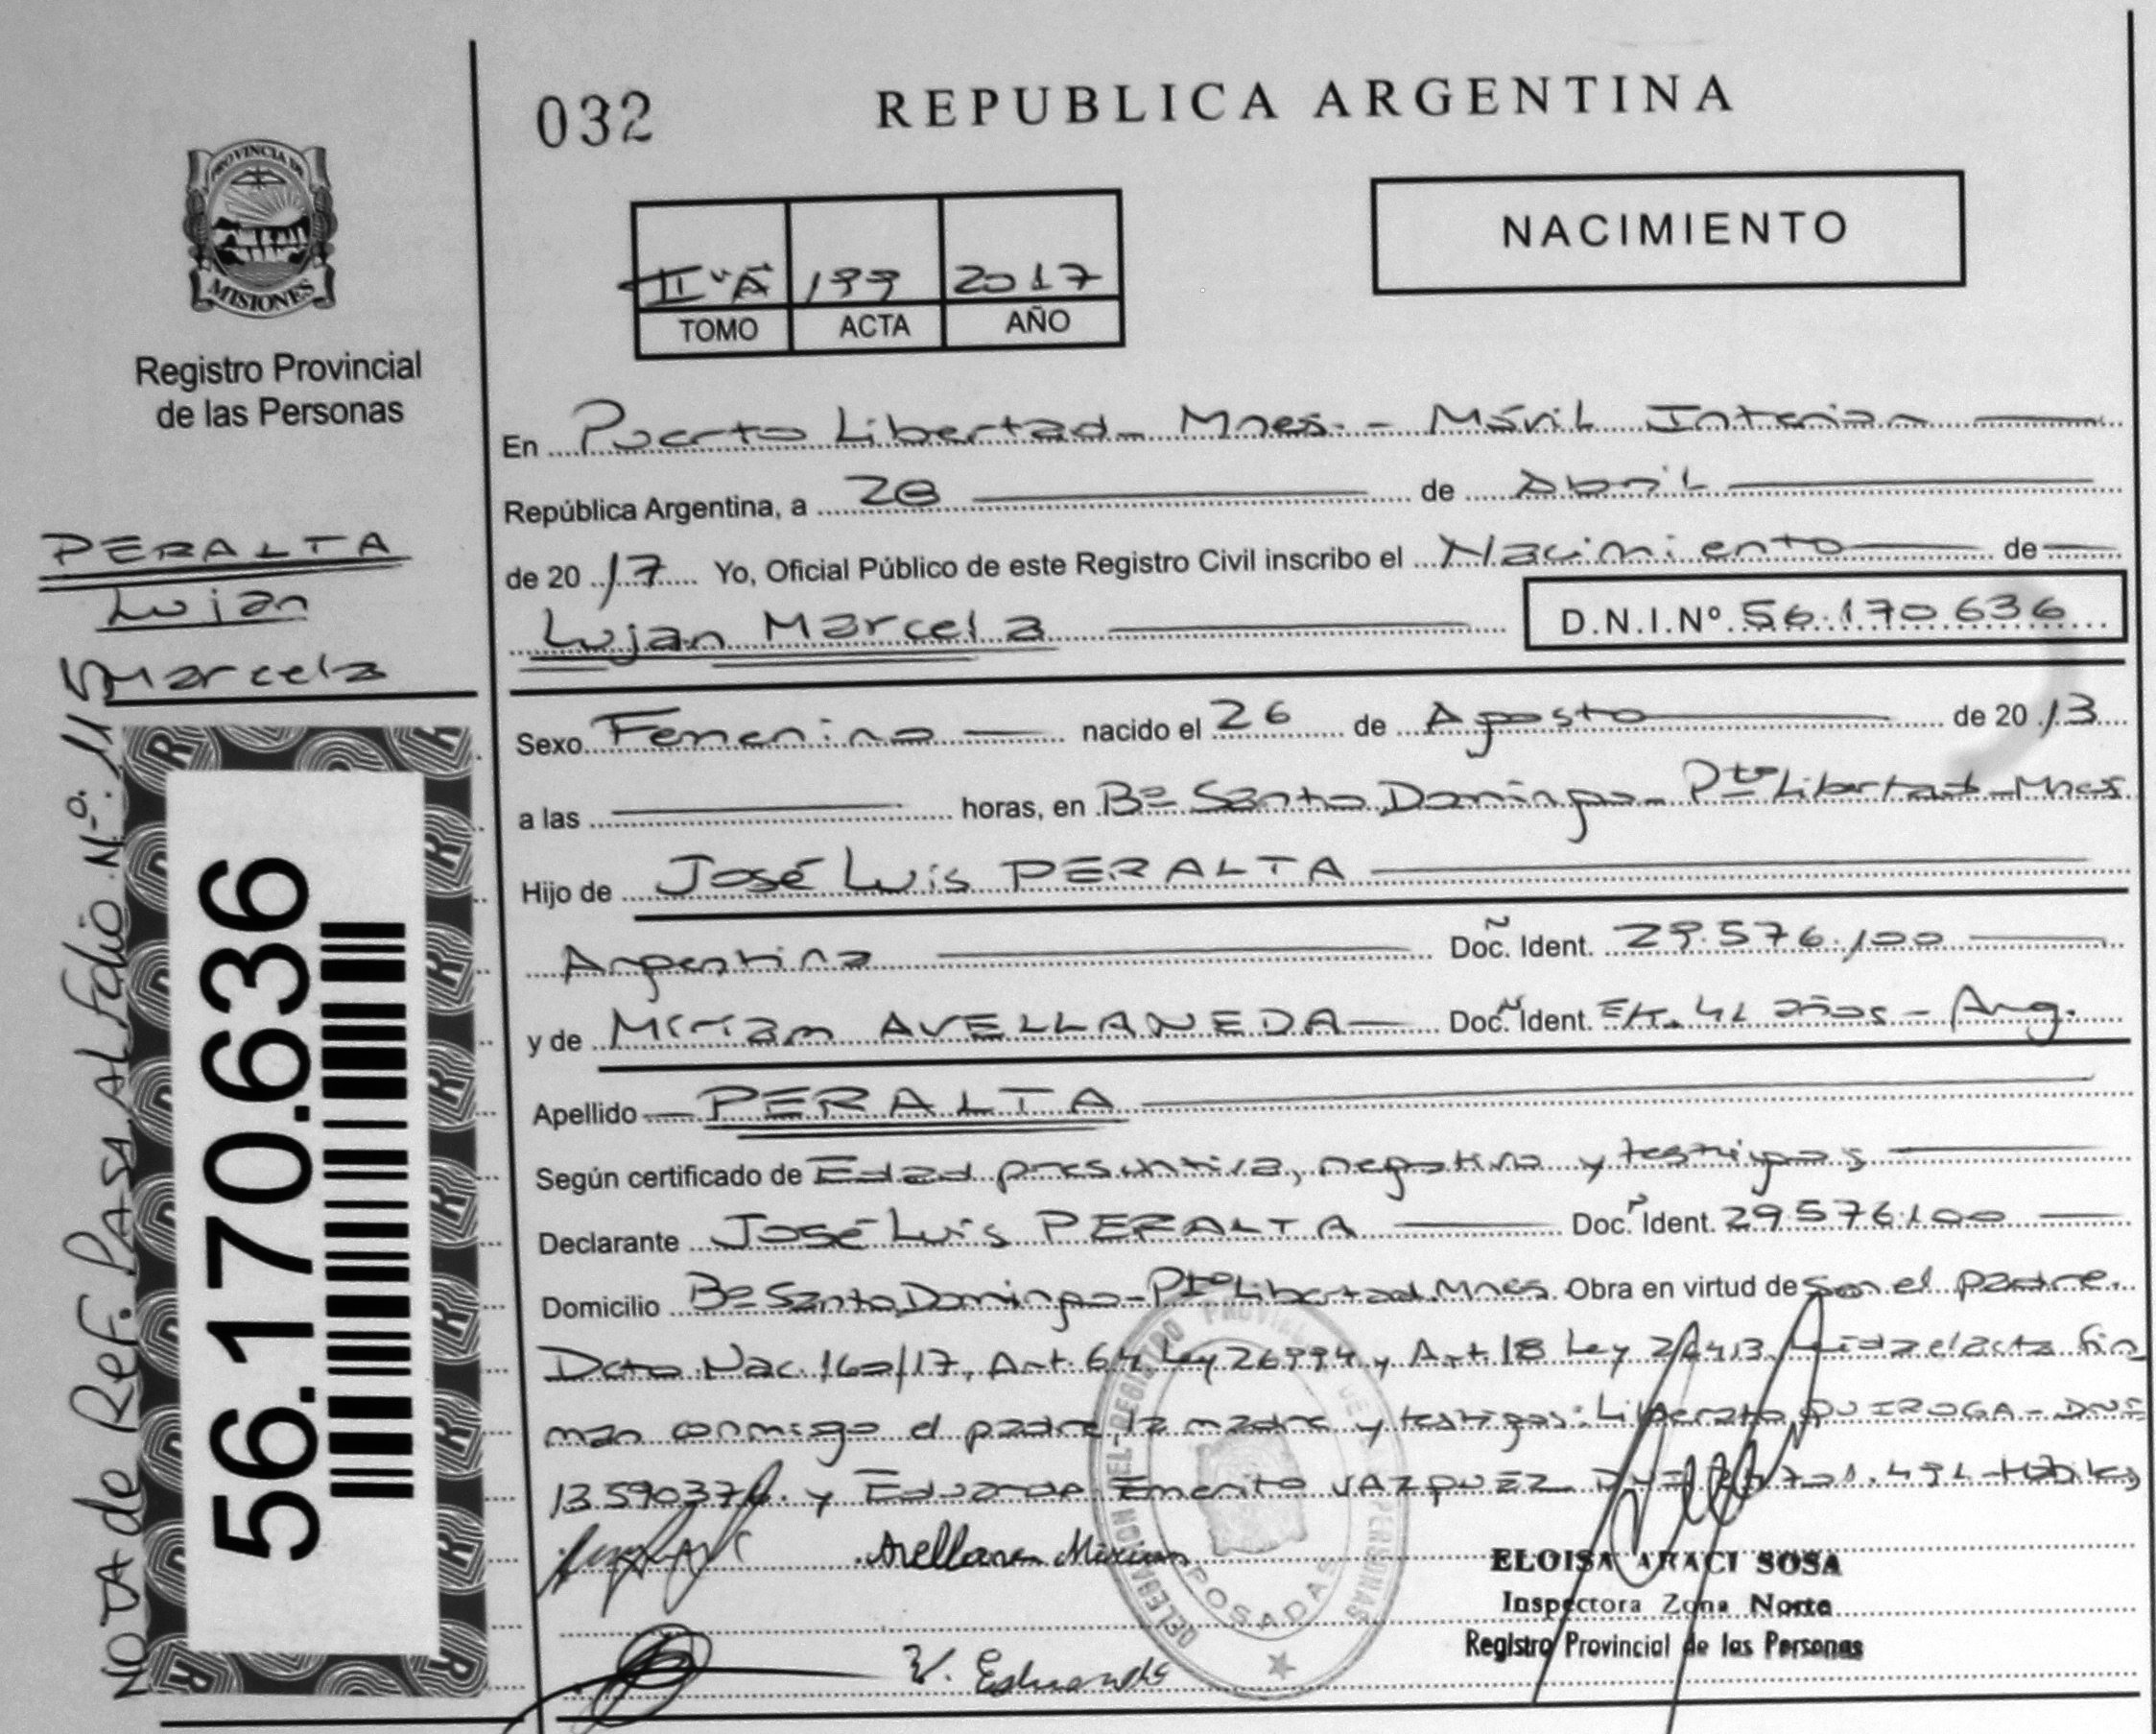 032
REPUBLICA ARGENTINA
PROVINCIA DE
MISIONES
Registro Provincial
de las Personas
NACIMIENTO
II "A" 199 2017
TOMO ACTA AÑO
En Puerto Libertad - Mnes. - Móvil Interior
República Argentina, a 28 de Abril
de 2017 Yo, Oficial Público de este Registro Civil inscribo el Nacimiento de
Lujan Marcela D.N.I.Nº 56.170.636
PERALTA
Lujan
Marcela
Sexo Femenino nacido el 26 de Agosto de 2013
a las horas, en Bº Santo Domingo - Pto Libertad - Mnes
Hijo de José Luis PERALTA
Argentina Doc. Ident. 29.576.100
y de Miriam AVELLANEDA Doc. Ident. 41 años - Arg.
Apellido PERALTA
Según certificado de Edad presuntiva, negativa y testigos
Declarante José Luis PERALTA Doc. Ident. 29.576.100
Domicilio Bº Santo Domingo - Pto Libertad. Mnes Obra en virtud de son el padre.
Dcto. Nac. 160/17, Art. 64 Ley 26994 y Art. 18 Ley 26413. Leida el acta fir
man conmigo el padre, la madre y testigos: Liberato QUIROGA - DNI
1359037 y Eduardo Emerito VAZQUEZ
Avellane Miriam
V. Eduardo
DELEGACION DEL REGISTRO PROVINCIAL DE LAS PERSONAS
POSADAS
ELOISA ARACI SOSA
Inspectora Zona Norte
Registro Provincial de las Personas
56.170.636
NOTA de Ref. PASA AL Folio Nº 11